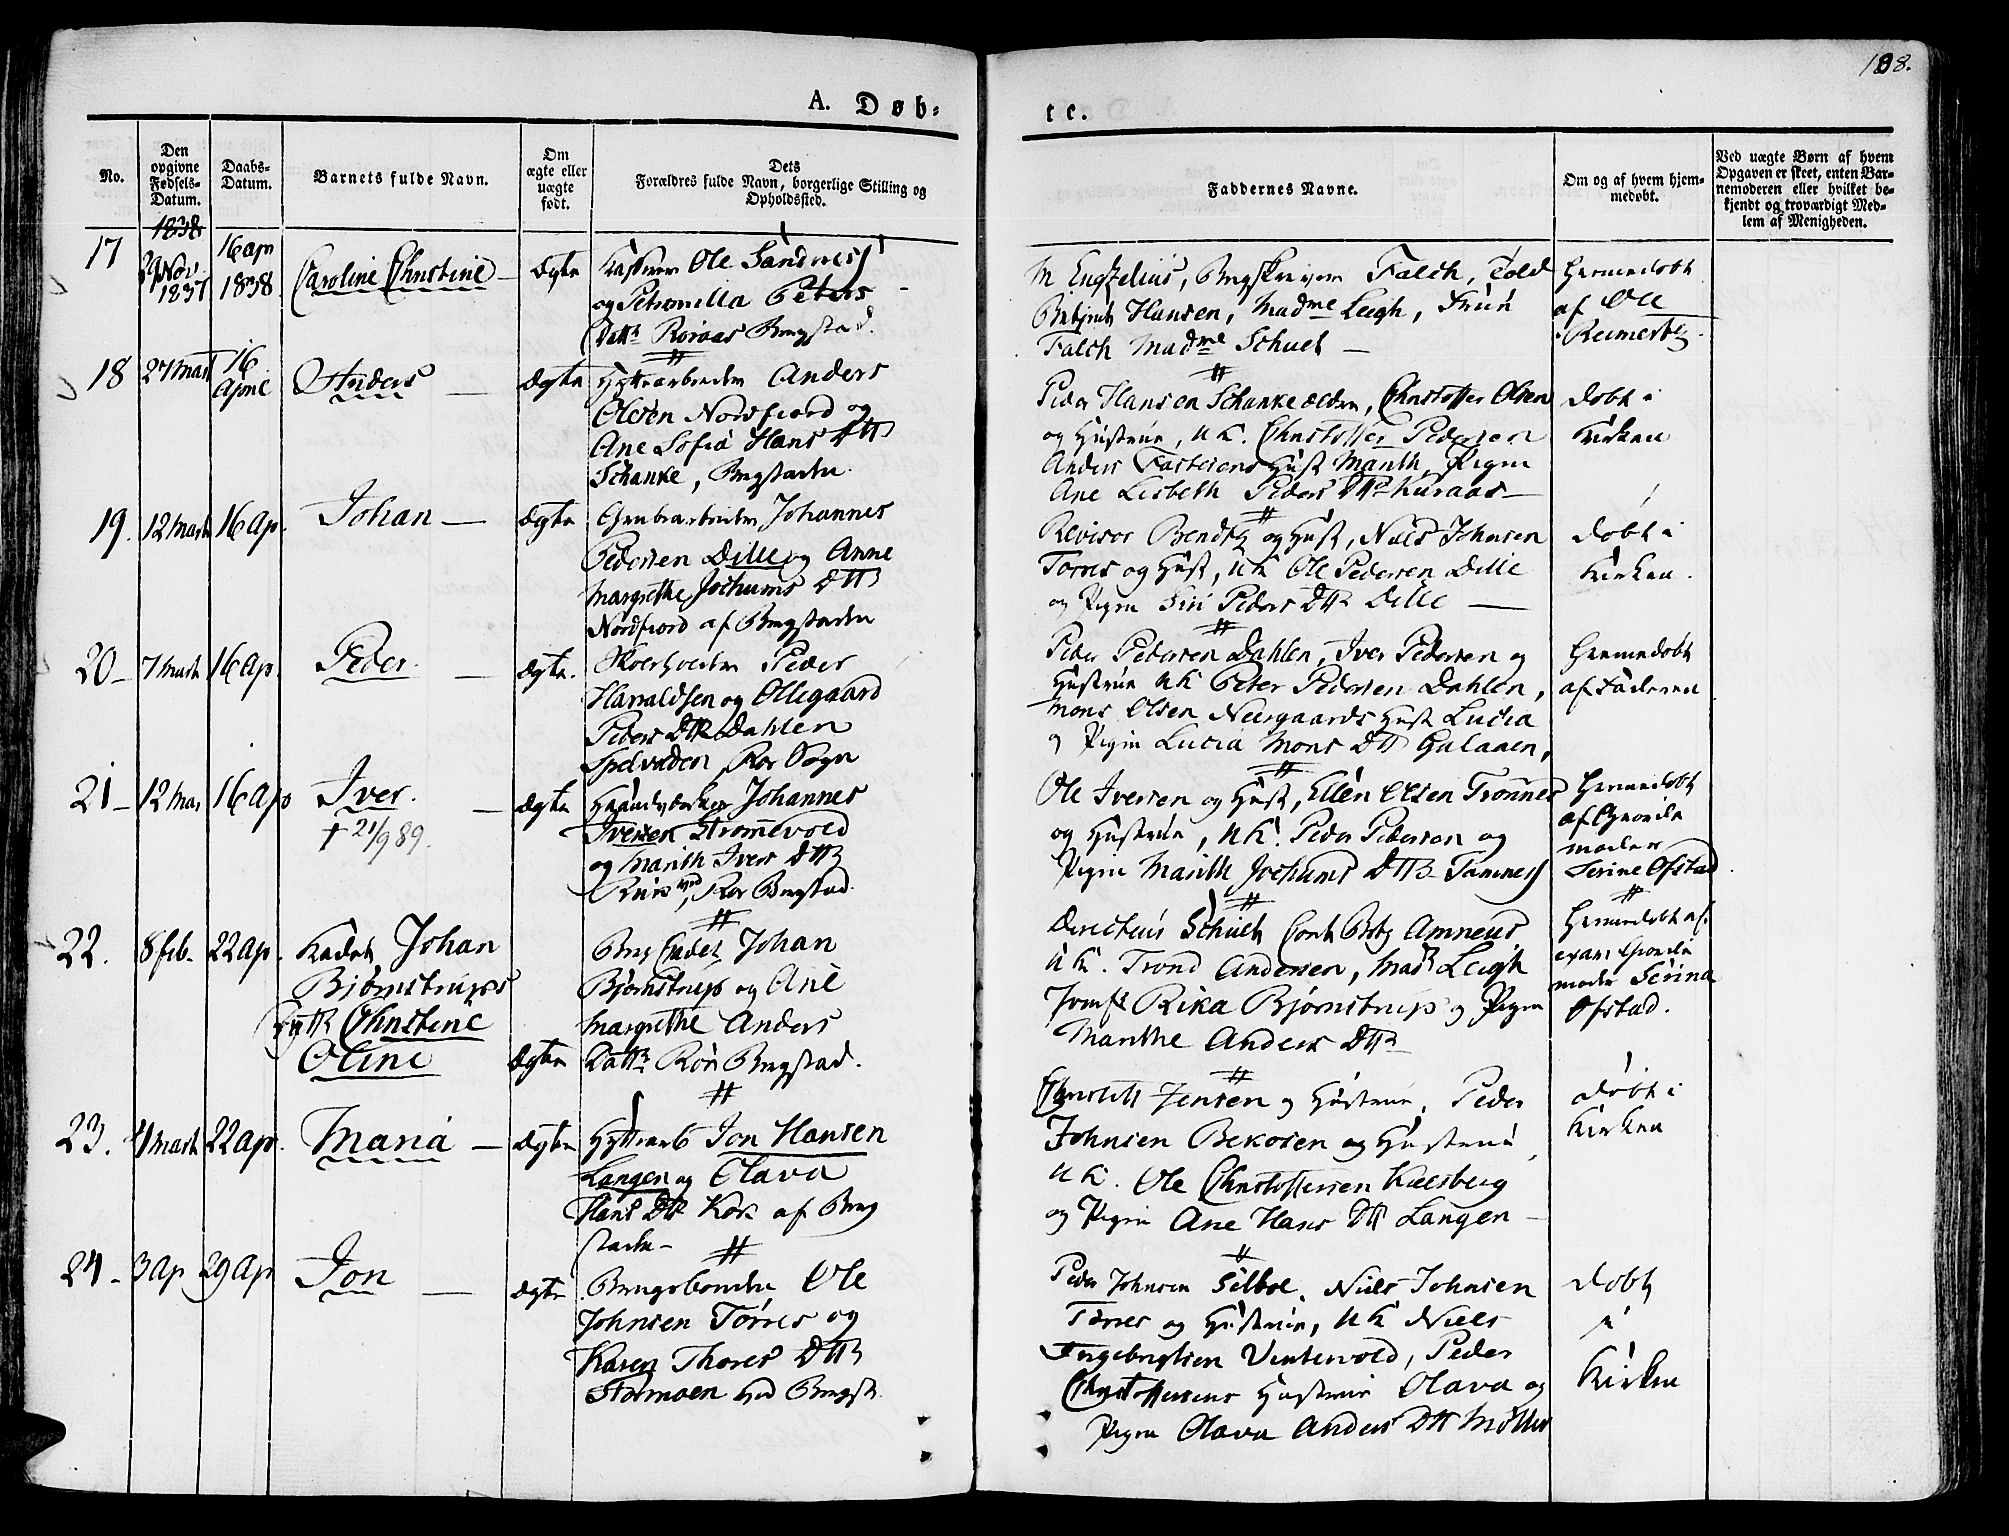 188.
A. Døb-
te.
No.
Den opgivne Fødsels-Datum.
Daabs-Datum.
Barnets fulde Navn.
Om ægte eller uægte født.
Dets Forældres fulde Navn, borgerlige Stilling og Opholdssted.
Faddernes Navne.
Om og af hvem hjemmedøbt.
Ved uægte Børn af hvem Opgaven er skeet, enten Barnemoderen eller hvilket bekjendt og troværdigt Medlem af Menigheden.
1838
17
29 Nov 1837
16 ap 1838
Caroline Christine
Ægte
Ole Sandnes
og Petronella Peters
Dattr Røraas Bergstad.
M Engzelius, Bergskriver Falch, Told
Betjent Hansen, Madme Leigh, Frue
Falch Madme Schult
Hjemmedøbt
af Ole
Reimersby
18
27 Mart
16 April
Anders
Ægte
Hyttearbeider Anders
Olsen Nordfiord og
Ane Sofia Hans Dtt
Schanke, Bergstaden.
Peder Hansen Schanke ældre, Christoffer Olsen
og Hustrue, UK. Christoffer Pedersen
Anders Fastesens Hust Marith, Pigen
Ane Lisbeth Peders Dtr Kuraas
døbt i
Kirken
19.
12 Mart
16 Ap.
Johan
Ægte
Grubearbeider Johannes
Pedersen Dille og Anne
Margrethe Jochums Dtt
Nordfiord af Bergstaden
Revisor Bendtz og Hust, Niels Johnsen
Torres og Hust, UK Ole Pedersen Dille
og Pigen Siri Peders Dtr Dille
døbt i
Kirken.
20
7 Mart
16 Ap.
Peder
Ægte.
Peder
Harraldsen og Ollegaard
Peders Dtr Dahlen
Ror Sogn
Peder Pedersen Dahlen, Iver Pedersen og
Hustrue UK Peter Pedersen Dahlen,
Mons Olsen Neergaards Hust Lucia
og Pigen Lucia Mons Dtt Galaaen,
Hjemmedøbt
af Faderen
21
12 Mar
16 Ap
Iver.
† 21/9 89.
Ægte
Haandværker Johannes
Iversen Strømmevold
og Marith Ivers Dtt
Ror Bergstad.
Ole Iversen og Hust, Ellen Olsen Trønnes
og Hustrue, UK. Peder Pedersen og
Pigen Marith Jochums Dtt Tamnes
Hjemmedøbt
af Giorde
moder
Serine Ofstad
22.
8 feb.
22 ap.
Kadet Johan
Bjørnstrups
Dtr Christine
Oline
Ægte
Berg Cadet Johan
Bjørnstrup og Ane
Margrethe Anders
Dattr Rør Bergstad.
Directeur Schult Amneus
UK. Trond Andersen, Mad Leigh
Jomfr Rika Bjørnstrup og Pigen
Marithe Anders Dtt
Hjemmedøbt af
exam Giorde
moder Serina
Ofstad.
23.
4 Mart
22 ap.
Maria
Ægte
Hyttearb Jon Hansen
Langen og Olava
Hans Dtr Kok af Berg
staden
Jensen og Hustrue, Peder
Johnsen Bekosen og Hustrue
UK. Ole Christoffersen Kaesberg
og Pigen Ane Hans Dtt Langen
døbt i
Kirken
24
3 Ap
29 Ap
Jon
Ægte
Brugsbonden Ole
Johnsen Torres og
Karen Thores Dtt
Stormoen ved Bergst.
Peder Johnsen Selboe, Niels Johnsen
Torres og Hustrue, UK Niels
Ingebrigtsen Vintervold, Peder
Christoffersens Hustrue Olava og
Pigen Olava Anders Dtt Møller
døbt
i
Kirken